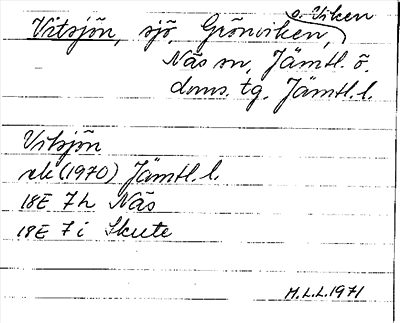 Vitsjön, sjö, Grönviken, o. Viken
Näs sn, Jämtl. ö.
doms. tg. Jämtl. l.
Vitsjön
ek (1970) Jämtl. l.
18E 7h Näs
18E 7i Skute
M.L.L. 1971